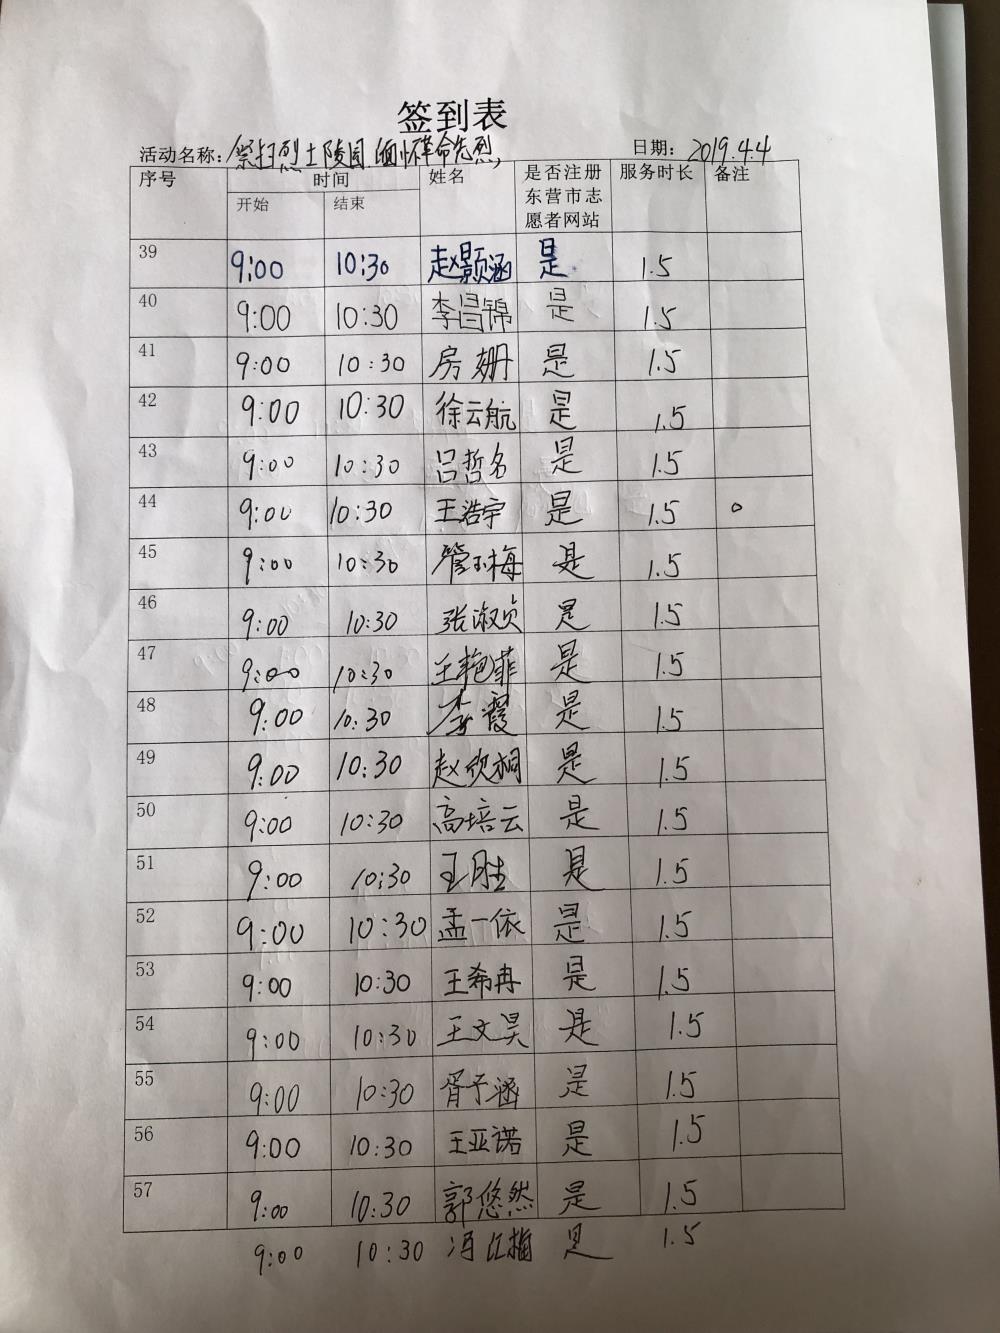 签到表
活动名称：祭扫烈士陵园 缅怀革命先烈 日期：2019.4.4
序号 时间 姓名 是否注册东营市志愿者网站 服务时长 备注
开始 结束
39 9:00 10:30 赵颢涵 是 1.5
40 9:00 10:30 李昌锦 是 1.5
41 9:00 10:30 房姗 是 1.5
42 9:00 10:30 徐云航 是 1.5
43 9:00 10:30 吕哲名 是 1.5
44 9:00 10:30 王浩宇 是 1.5
45 9:00 10:30 是 1.5
46 9:00 10:30 张淑贞 是 1.5
47 9:00 10:30 王艳菲 是 1.5
48 9:00 10:30 李霞 是 1.5
49 9:00 10:30 赵欣桐 是 1.5
50 9:00 10:30 高培云 是 1.5
51 9:00 10:30 王胜 是 1.5
52 9:00 10:30 孟一依 是 1.5
53 9:00 10:30 王希冉 是 1.5
54 9:00 10:30 王文昊 是 1.5
55 9:00 10:30 胥予涵 是 1.5
56 9:00 10:30 王亚诺 是 1.5
57 9:00 10:30 郭悠然 是 1.5
9:00 10:30 冯红梅 是 1.5